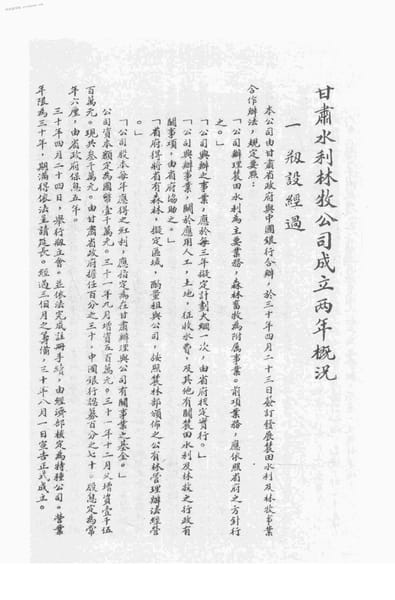 甘肅水利林牧公司成立两年概況
一 剏設經過
本公司由甘肅省政府與中國銀行合辦，於三十年四月二十三日簽訂發展農田水利及林牧事業
合作辦法，規定要點：
「公司辦理農田水利為主要業務，森林畜牧為附属事業。前項業務，應依照省府之方針行
之。」
「公司興辦之事業，應於每三年擬定計劃大綱一次，由省府核定實行。」
「公司興辦事業，關於應用人工，土地，征收水費，及其他有關農田水利及林牧之行政有
關事項，由省府協助之。」
「省府得將省有森林，擬定區域，酌量租與公司，按照農林部頒佈之公有林管理辦法經營
。」
「公司股本每年應得之紅利，應指定為在甘肅辦理與公司有關事業之基金。」
公司資本額定為國幣壹千萬元。三十一年九月增資五百萬元。三十一年十二月又增資壹千伍
百萬元。現共叁千萬元。由甘肅省政府擔任百分之三十，中國銀行認募百分之七十。股息定為常
年六厘，由省政府保息五年。
三十年四月二十四日，舉行創立會。並依法完成註冊手續，由經濟部核定為特種公司。營業
年限為三十年，期滿得依法呈請延長。經過三個月之籌備，三十年八月一日宣告正式成立。